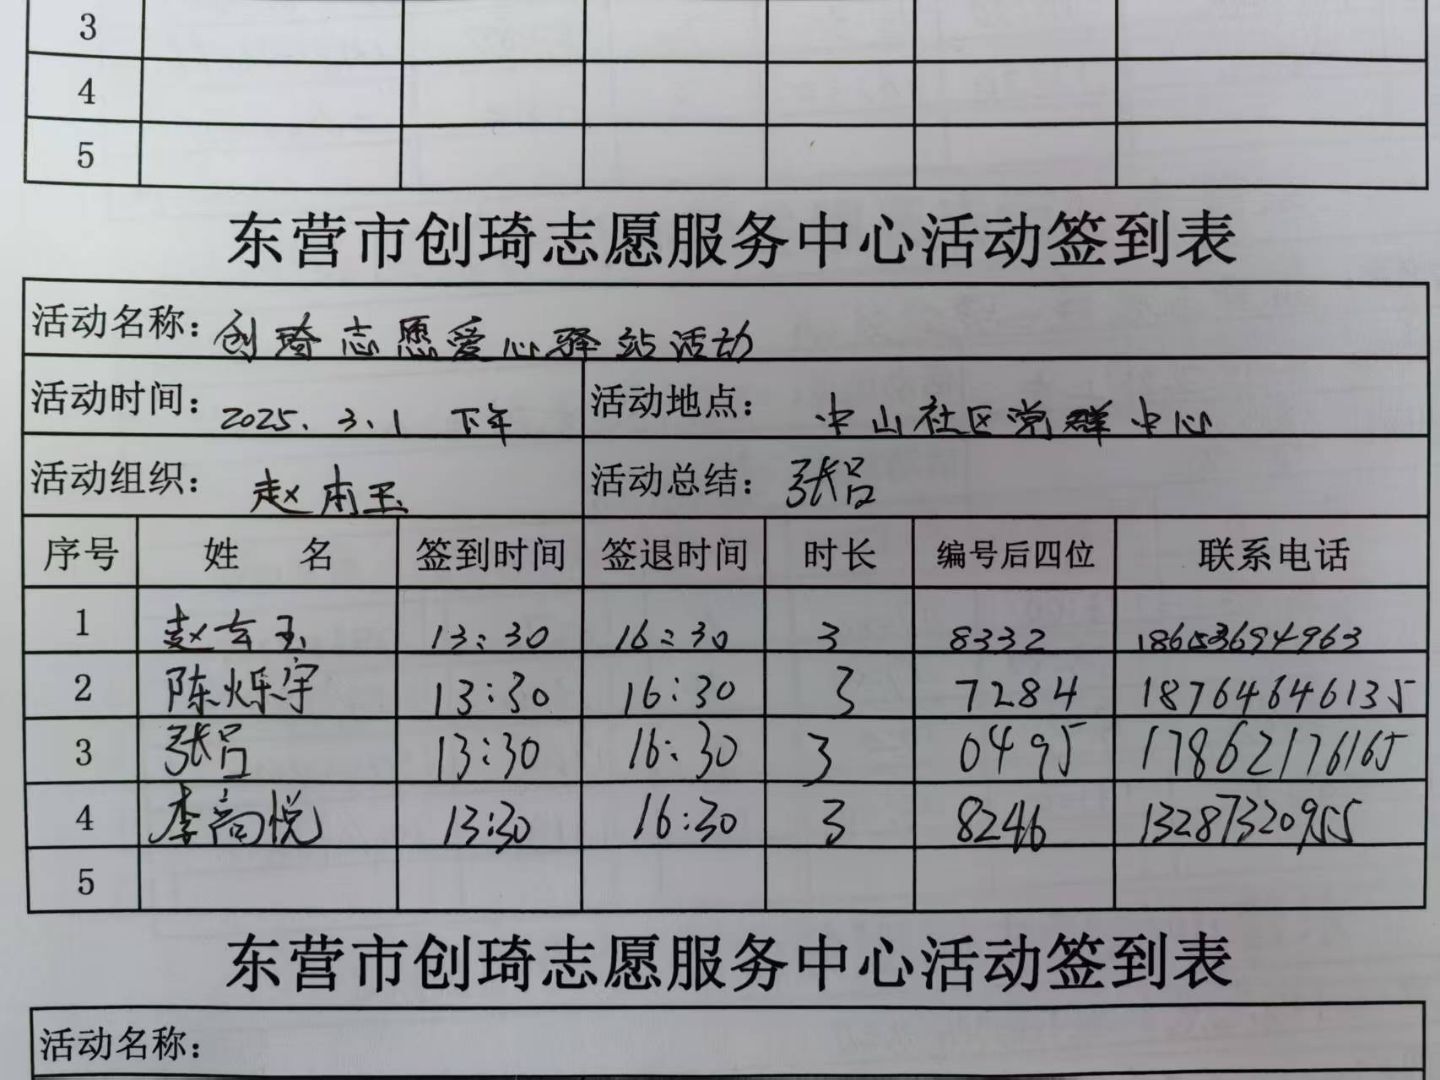 3
4
5
东营市创琦志愿服务中心活动签到表
活动名称：创琦志愿爱心驿站活动
活动时间：2025.3.1 下午 活动地点：中山社区党群中心
活动组织：赵本玉 活动总结：张吕
序号 姓 名 签到时间 签退时间 时长 编号后四位 联系电话
1 赵玉 13:30 16:30 3 8332
2 陈烁宇 13:30 16:30 3 7284 18764646135
3 张吕 13:30 16:30 3 0495 17862176165
4 李尚悦 13:30 16:30 3 8246 13287320955
5
东营市创琦志愿服务中心活动签到表
活动名称：